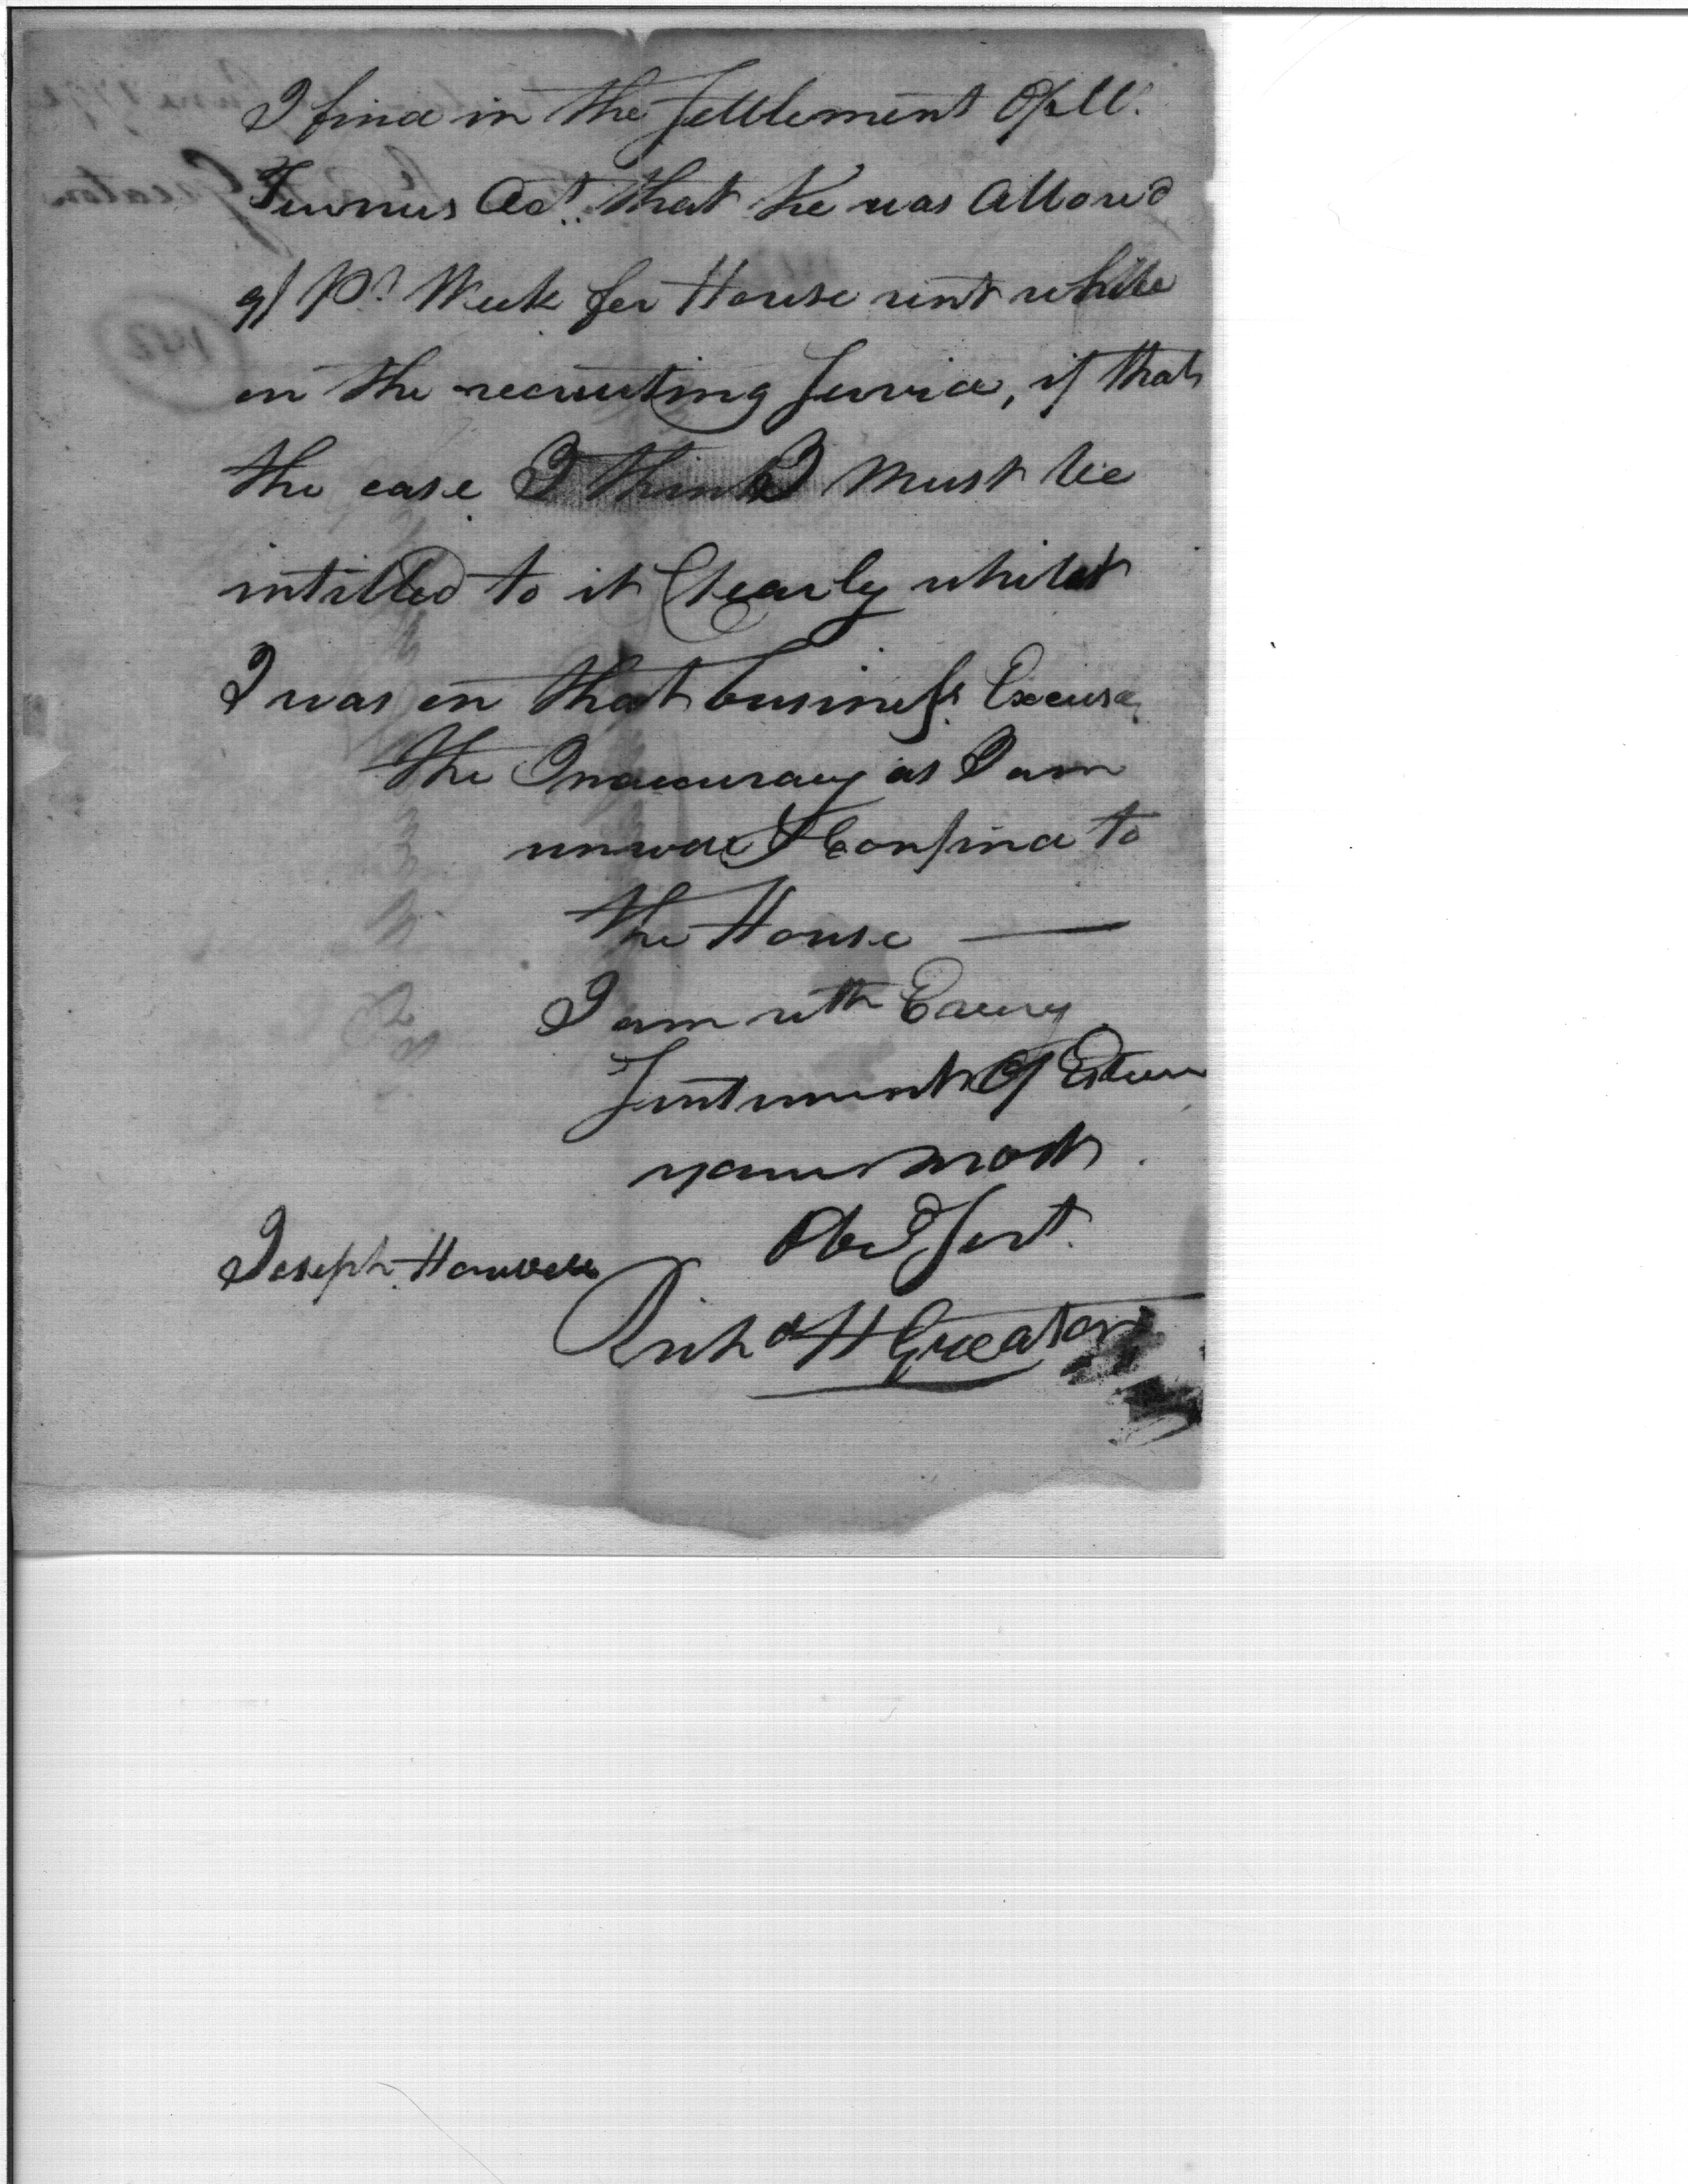 I find in the Settlement Of M.r
Turners Act. that he was Allowd
9/ Pr Week for House rent while
on the recruiting Service, if that
the case I think I must be
intitled to it Clearly whilst
I was on that business. Excuse
the Inaccuracy as I am
unwell & Confind to
the House —
I am with Every
Sentiment Of Esteem
your most
Obed Sert.
Joseph Howell
Richd H Greaton